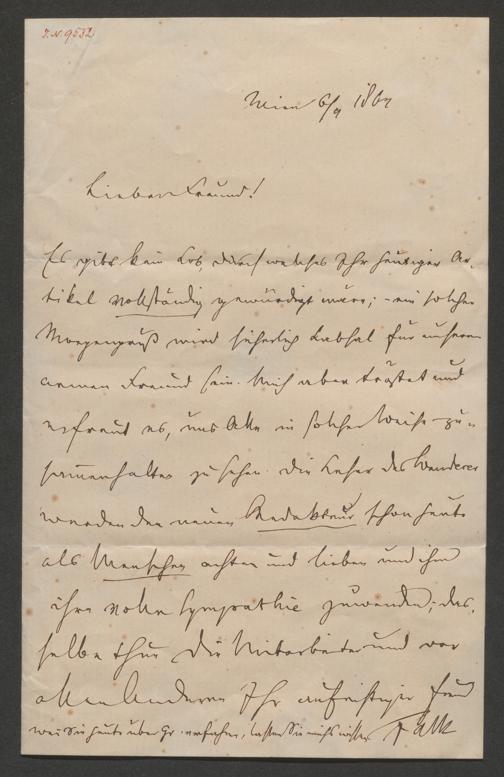 J.N. 9532
Wien 6/9 1867
Lieber Freund!
Es gibt kein Lob, durch welches Ihr heutiger Ar-
tikel vollständig gewürdigt wäre; – ein solcher
Morgengruß wird sicherlich Labsal für unseren
armen Freund sein. Mich aber tröstet und
erfreut es, uns Alle in solcher Weise zu-
sammenhalten zu sehen. Die Leser des Wanderer
werden den neuen Redakteur schon heute
als Menschen achten und lieben und ihm
ihre volle Sympathie zuwenden; das-
selbe thun die Mitarbeiter und vor
allen Anderen Ihr aufrichtiger Freund
was Sie heute über Gr. erfahren, lassen Sie mich wissen. Falk